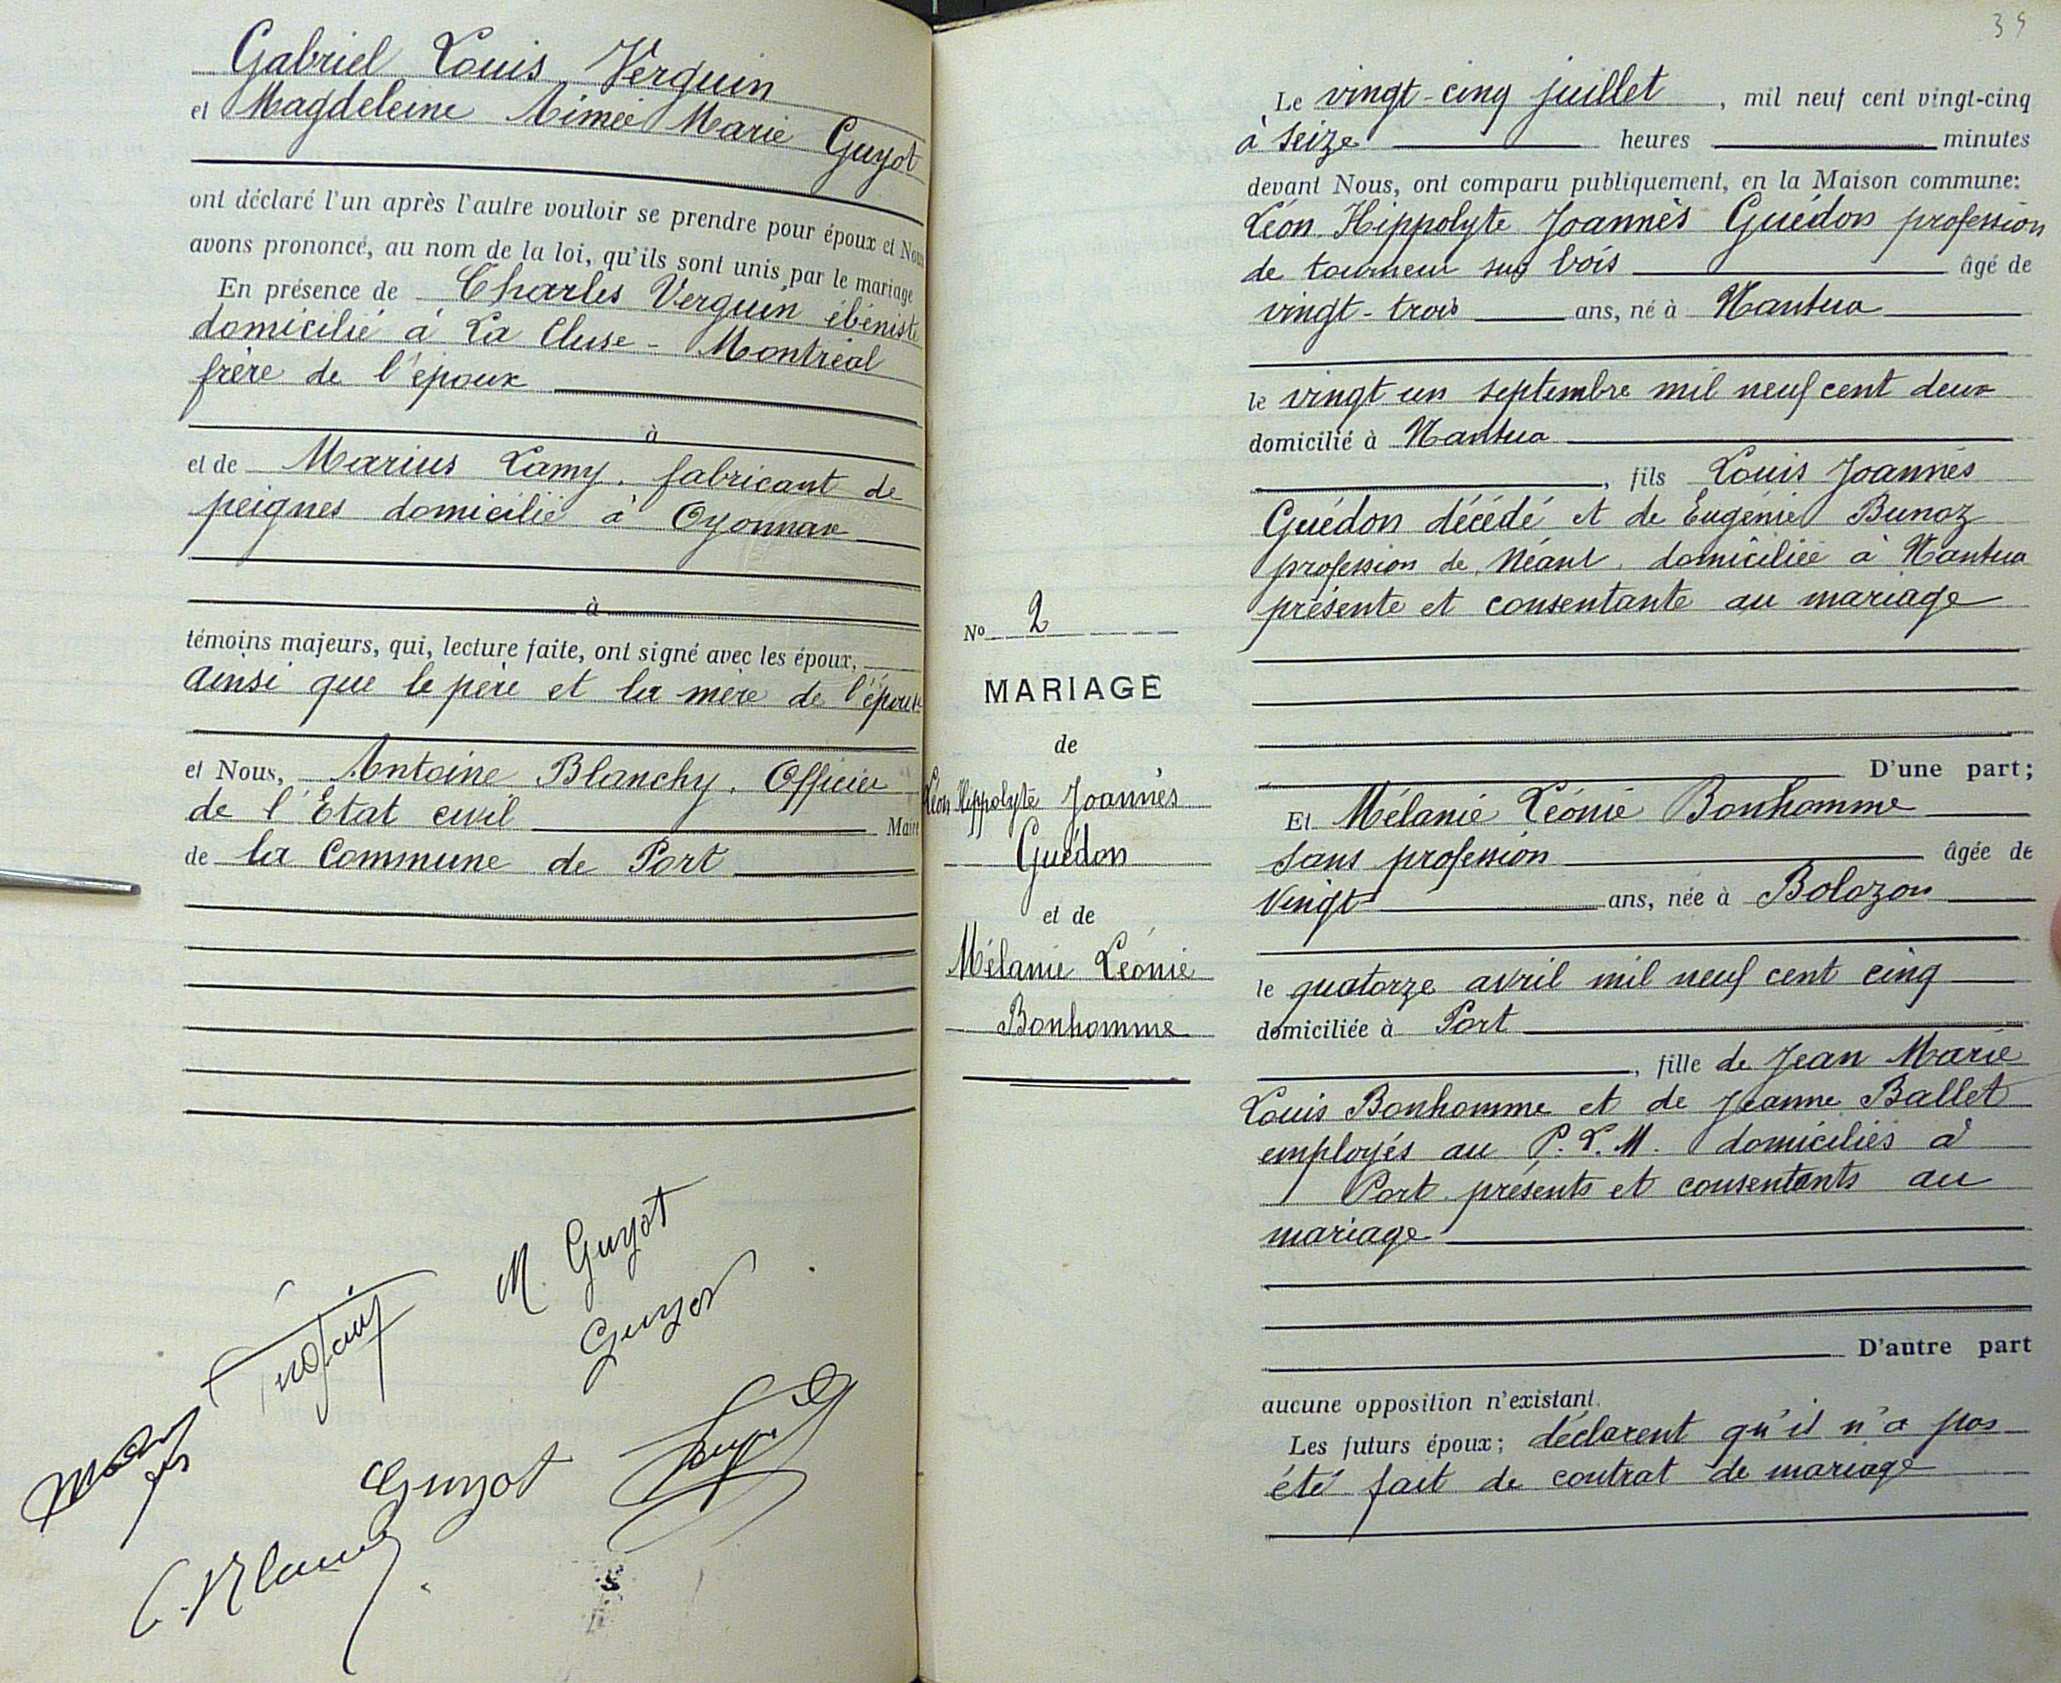 Gabriel Louis Verguin
et Magdeleine Aimée Marie Guyot
ont déclaré l'un après l'autre vouloir se prendre pour époux et Nous
avons prononcé, au nom de la loi, qu'ils sont unis par le mariage
En présence de Charles Verguin ébéniste
domicilié à La Cluse - Montréal
frère de l'époux
à
et de Marius Lamy, fabricant de
peignes domicilié à Oyonnax
à
témoins majeurs, qui, lecture faite, ont signé avec les époux,
ainsi que le père et la mère de l'épouse
et Nous, Antoine Blanchy, Officier
de l'Etat civil Maire
de la Commune de Port
M. Guyot
Guyot
Guyot
39
Le vingt-cinq juillet, mil neuf cent vingt-cinq
à seize heures minutes
devant Nous, ont comparu publiquement, en la Maison commune:
Léon Hippolyte Joannès Guédon profession
de tourneur sur bois âgé de
vingt-trois ans, né à Nantua
le vingt un septembre mil neuf cent deux
domicilié à Nantua
, fils Louis Joannès
Guédon décédé et de Eugénie Bunoz
profession de Néant. domiciliée à Nantua
présente et consentante au mariage
D'une part;
No 2
MARIAGE
de
Léon Hippolyte Joannès
Guédon
et de
Mélanie Léonie
Bonhomme
Et Mélanie Léonie Bonhomme
sans profession âgée de
vingt ans, née à Bolozon
le quatorze avril mil neuf cent cinq
domiciliée à Port
, fille de Jean Marie
Louis Bonhomme et de Jeanne Ballet
employés au P.L.M. domiciliés à
Port présents et consentants au
mariage
D'autre part
aucune opposition n'existant.
Les futurs époux; déclarent qu'il n'a pas
été fait de contrat de mariage